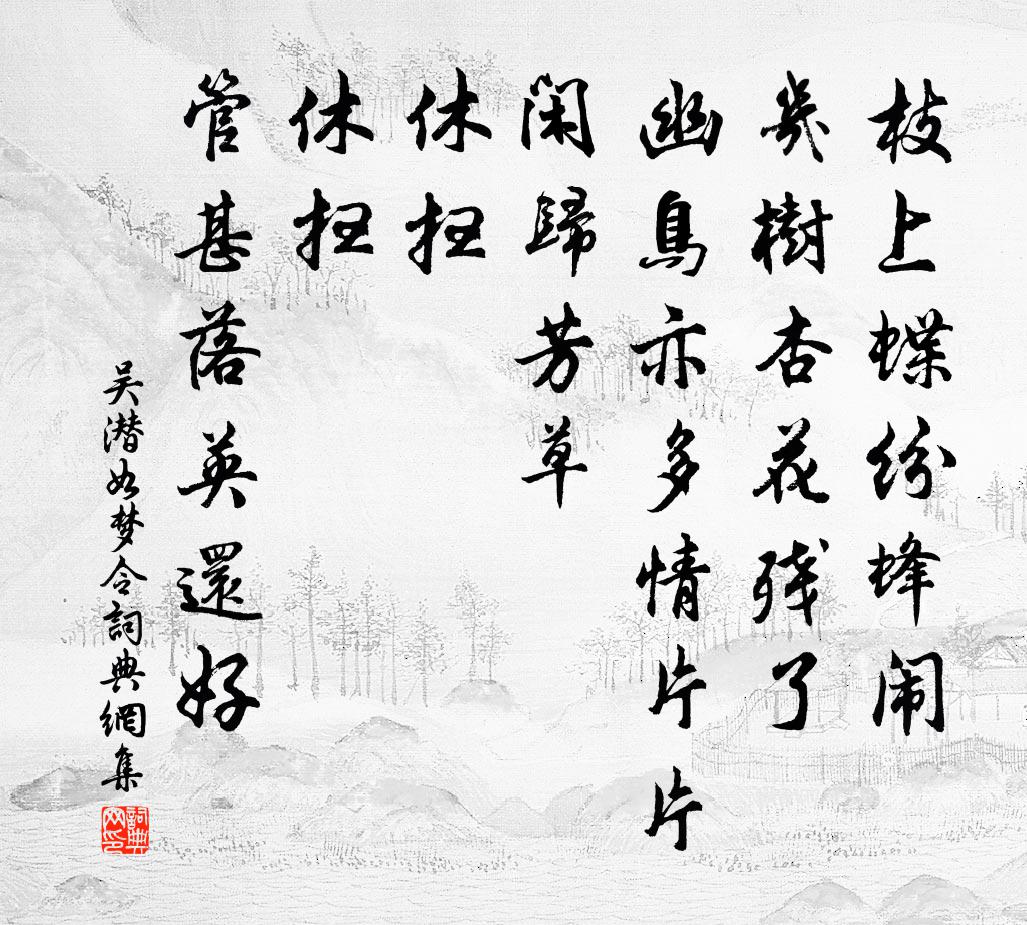 枝上蝶紛蜂闹
幾樹杏花残了
幽鳥亦多情片片
闲歸芳草
休扫
休扫
管甚落英還好
吴潜如梦令詞典網集
詞典网印